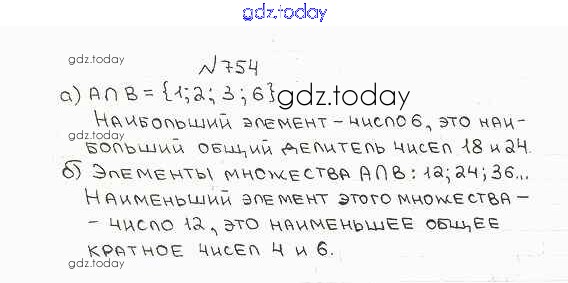 gdz.today
gdz.today
№754
а) A∩B = {1; 2; 3; 6} gdz.today
Наибольший элемент - число 6, это наи-
больший общий делитель чисел 18 и 24.
б) Элементы множества A∩B: 12; 24; 36...
gdz.today
Наименьший элемент этого множества -
- число 12, это наименьшее общее
кратное чисел 4 и 6.
gdz.today